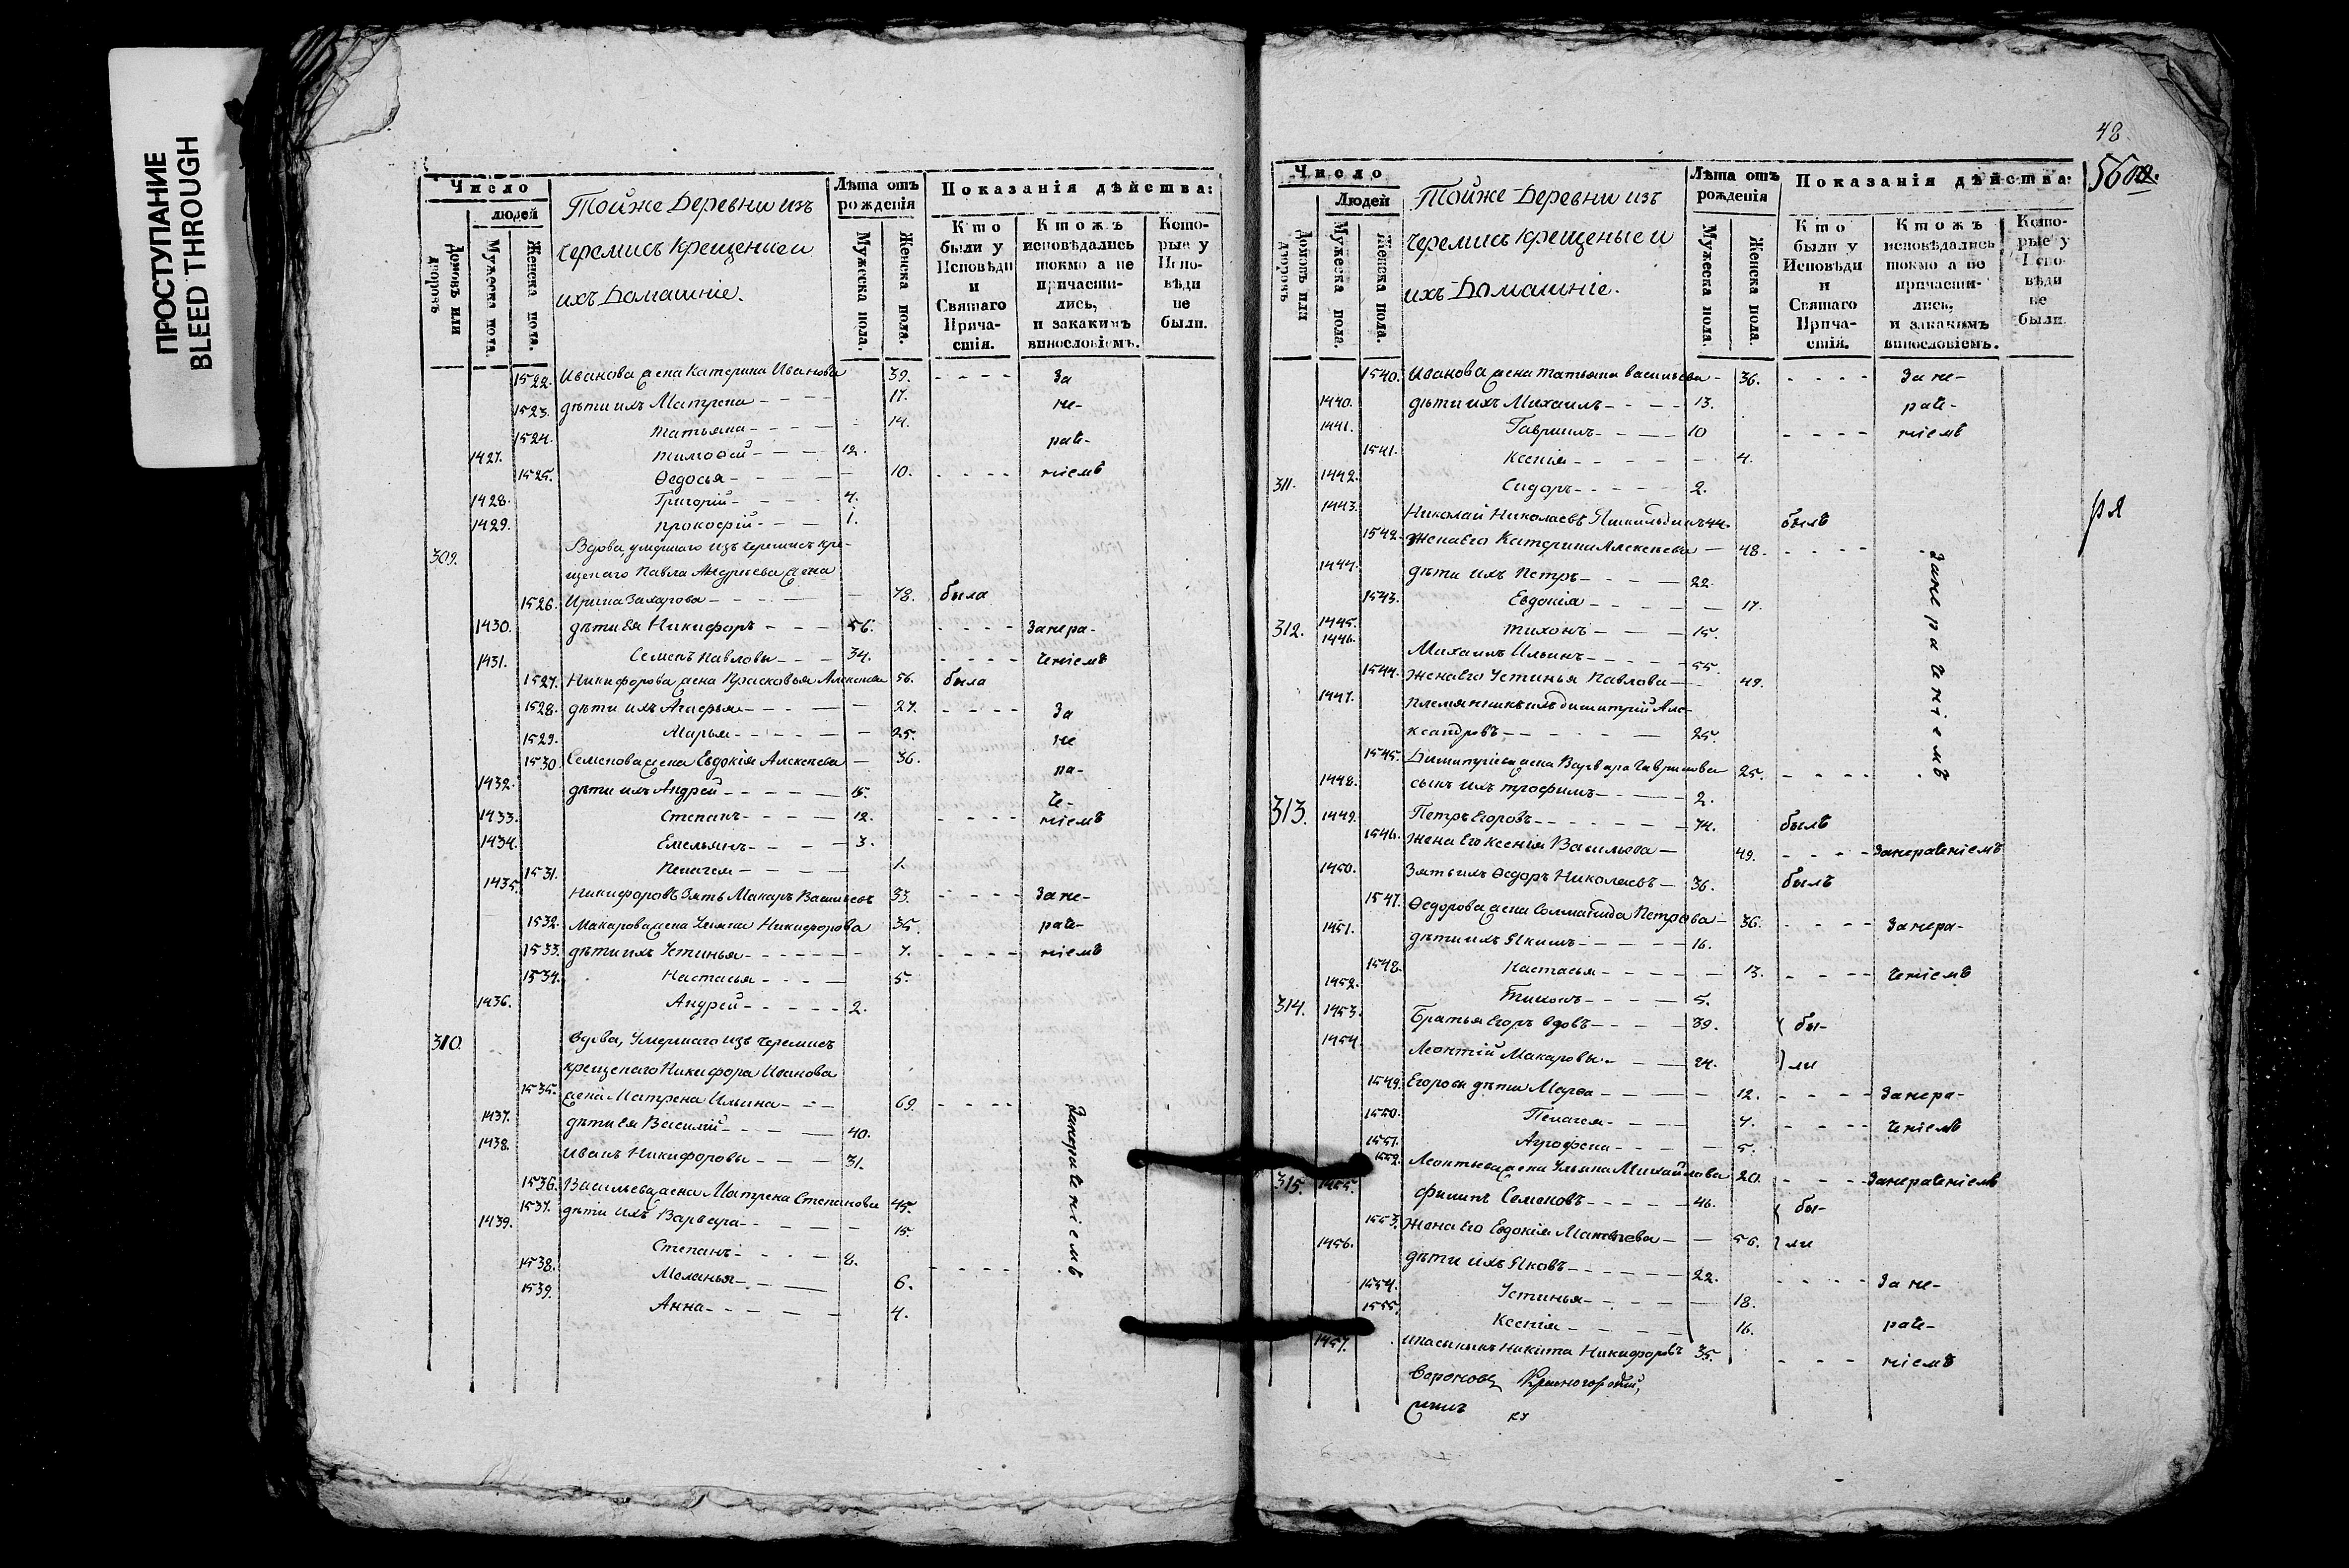 ПРОСТУПАНИЕ
BLEED THROUGH
Число
людей
Домовъ или дворовъ
Мужеска пола.
Женска пола.
Тойже Деревни изъ
черемисъ крещеные и
ихъ Домашніе.
Лѣта отъ рожденія
Мужеска пола.
Женска пола.
Показанія дѣйства:
Кто были у Исповѣди и Святаго Причастія.
Ктожъ исповѣдались токмо а не причастились, и закакимъ винословіемъ.
Которые у Исповѣди не были.
1522. Иванова жена Катерина Иванова 39. За
1523. дѣти ихъ Матрена 17. не-
1524. Татьяна 14. раче-
1427. Тимофей 12.
1525. Ѳедосья 10. ніемъ
1428. Григорій 4.
1429. Прокофій 1.
309. Вдова умершаго изъ черемисъ кре-
щенаго Павла Андреева жена
1526. Ирина Захарова 78. была
1430. дѣти ея Никифоръ 56. Занера-
1431. Семенъ Павловы 34. ченіемъ
1527. Никифорова жена Прасковья Алексѣева 56. была
1528. дѣти ихъ 27. За
1529. Марья 25. не
1530. Семенова жена Евдокія Алексѣева 36. ра-
1432. дѣти ихъ Андрей 15. че-
1433. Степанъ 12. ніемъ
1434. Емельянъ 3.
1531. Пелагея 1.
1435. Никифоровъ Зять Макаръ Васильевъ 33. Зане-
1532. Макарова жена Никифорова 35. раче-
1533. дѣти ихъ Устинья 7. ніемъ
1534. Настасья 5.
1436. Андрей 2.
310. Вдова, умершаго изъ черемисъ
крещенаго Никифора Иванова
1535. жена Матрена Ильина 69. Занераченіемъ
1437. дѣти ея Василій 40.
1438. Иванъ Никифоровы 31.
1536. Васильева жена Матрена Степанова 45.
1537. дѣти ихъ Варвара 15.
1439. Степанъ 8.
1538. Меланья 6.
1539. Анна 4.
48
560
Число
Людей
Домовъ или дворовъ
Мужеска пола.
Женска пола.
Тойже Деревни изъ
черемисъ крещеные и
ихъ Домашніе.
Лѣта отъ рожденія
Мужеска пола.
Женска пола.
Показанія дѣйства:
Кто были у Исповѣди и Святаго Причастія.
Ктожъ исповѣдались токмо а не причастились, и закакимъ винословіемъ.
Которые у Исповѣди не были.
1540. Иванова жена Татьяна Васильева 36. Зане-
1440. дѣти ихъ Михаилъ 13. раче-
1441. Гавріилъ 10 ніемъ
1541. Ксенія 4.
311. 1442. Сидоръ 2.
1443. Николай Николаевъ 44. былъ
1542. Жена его Катерина Алексѣева 48. Занераченіемъ
1444. дѣти ихъ Петръ 22.
1543. Евдокія 17.
312. 1445. Тихонъ 15.
1446. Михаилъ Ильинъ 55.
1544. Жена его Устинья Павлова 49.
1447. Племянникъ ихъ Димитрій Але-
ксандровъ 25.
1545. Димитріева жена Варвара Гаврилова 25.
1448. сынъ ихъ Трофимъ 2.
313. 1449. Петръ Егоровъ 74. былъ
1546. Жена Его Ксенія Васильева 49. Занераченіемъ
1450. Зять ихъ Ѳедоръ Николаевъ 36. былъ
1547. Ѳедорова жена Соломанида Петрова 36. Занера-
1451. дѣти ихъ Якимъ 16.
1548. Настасья 13. ченіемъ
1452. 5.
314. 1453. Братья Егоръ вдовъ 39. бы-
1454. Леонтій Макаровы 24. ли
1549. Егоровы дѣти Марфа 12. Занера-
1550. Пелагея 7. ченіемъ
1551. Агрофена 5.
1552. Леонтьева жена Ульяна Михайлова 20. Занераченіемъ
315. 1455. Филипъ Семеновъ 46. бы-
1553. Жена Его Евдокія 56. ли
1456. дѣти ихъ Яковъ 22. Зане-
1554. Устинья 18.
1555. Ксенія 16. раче-
1457. Никита Никифоровъ 35. ніемъ